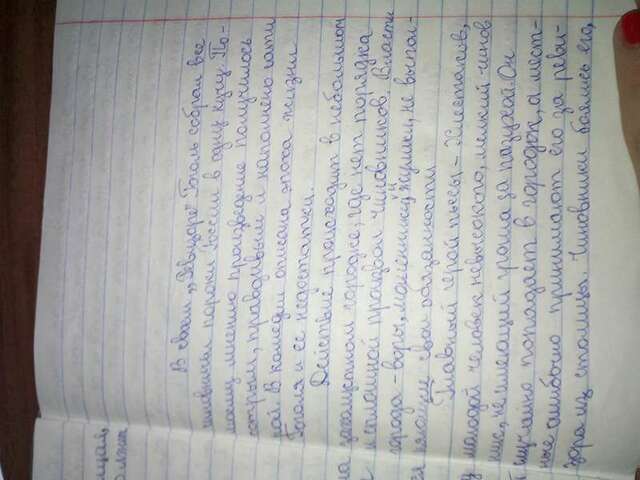 В своем „Ревизоре" Гоголь собрал все
пороки России в одну кучу. По-
моему мнению произведение получилось
острым, правдивым и наполнено сати-
рой. В комедии описана эпоха жизни
Гоголя и её недостатки.
Действие происходит в небольшом
захолустном городке, где нет порядка
и сплошной произвол чиновников. Власти
города - воры, мошенники и жулики, не выпол-
няющие свои обязанности.
Главный герой пьесы - Хлестаков,
молодой человек невысокого, мелкий чинов-
ник, не имеющий гроша за пазухой. Он
случайно попадает в городок, а мест-
ные ошибочно принимают его за реви-
зора из столицы. Чиновники боялись его,